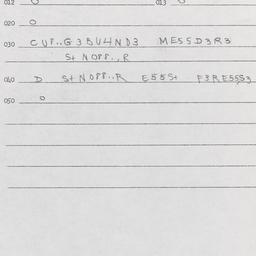 012 0 013 0
020 0
030 CUP..G35U4ND3 MESSD3R3
St NOPP..R
040 D St NOPP..R E555t F3RE5553
050 0